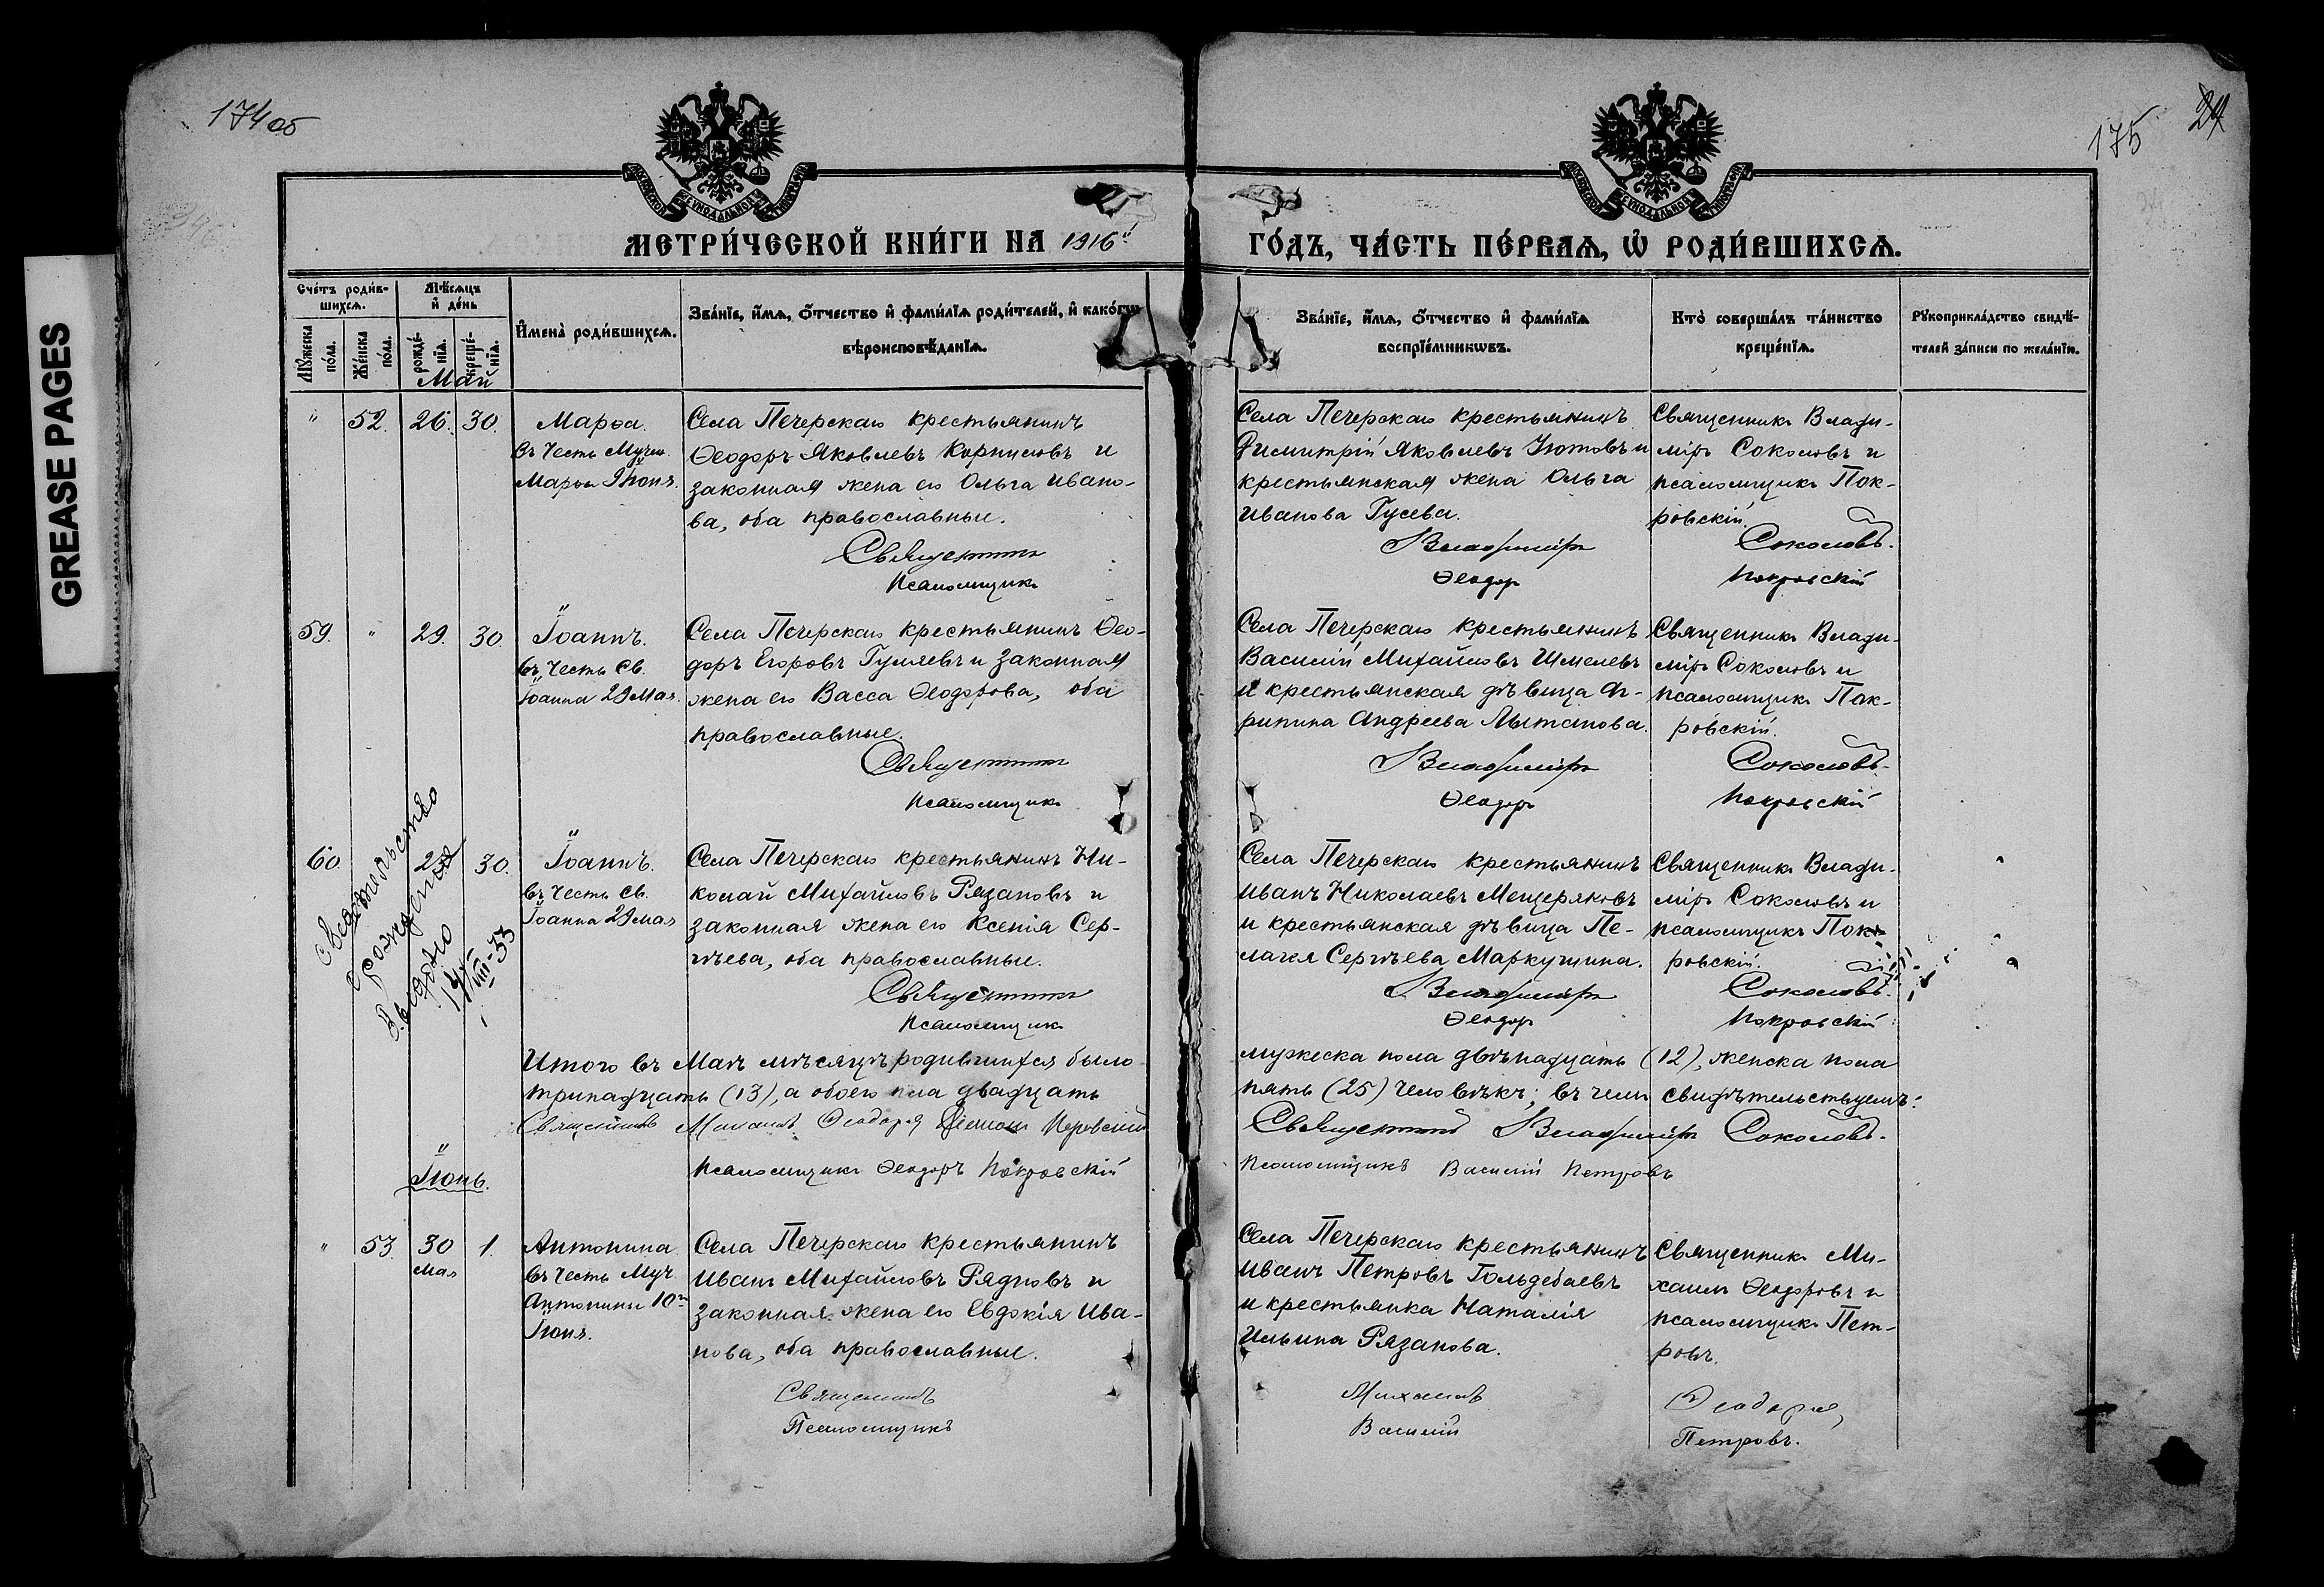 174 об
175
24
GREASE PAGES
МЕТРИ́ЧЕСКОЙ КНИ́ГИ НА 1916й ГО́ДЪ, ЧА́СТЬ ПЕ́РВАѦ, Ѡ҆ РОДИ́ВШИХСѦ.
Сче́тъ роди́в-
шихсѧ.
Мꙋ́жеска по́ла.
Же́нска по́ла.
Мѣ́сѧцъ и҆ де́нь
рожде́-
нїѧ.
креще́-
нїѧ.
Май
И҆мена̀ роди́вшихсѧ.
Зва́нїе, и҆́мѧ, ѻ҆́тчество и҆ фами́лїѧ роди́телей, и҆ како́гѡ
вѣроисповѣ́данїѧ.
Зва́нїе, и҆́мѧ, ѻ҆́тчество и҆ фами́лїѧ
воспрїе́мникѡвъ.
Кто̀ соверша́лъ та́инство
креще́нїѧ.
Рꙋкоприкла́дство свидѣ́-
телей за́писи по жела́нїю.
" 52. 26. 30. Марѳа.
въ честь Мучен.
Марѳы Іюня.
Села Печерскаго крестьянинъ
Ѳеодоръ Яковлевъ Корниловъ и
законная жена его Ольга Ивано-
ва, оба православные.
Священникъ
Псаломщикъ
Села Печерскаго крестьянинъ
Димитрій Яковлевъ Изотовъ и
крестьянская жена Ольга
Иванова Гусева.
Владиміръ
Ѳеодоръ
Священникъ Влади-
міръ Соколовъ и
псаломщикъ Пок-
ровскій.
Соколовъ.
Покровскій
59. " 29. 30. Іоаннъ.
въ честь Св.
Іоанна 29 Мая.
Села Печерскаго крестьянинъ Ѳео-
доръ Егоровъ Гуляевъ и законная
жена его Васса Ѳеодорова, оба
православные.
Священникъ
Псаломщикъ
Села Печерскаго крестьянинъ
Василій Михайловъ Шмелевъ
и крестьянская дѣвица Аг-
рипина Андреева Лытанова.
Владиміръ
Ѳеодоръ
Священникъ Влади-
міръ Соколовъ и
псаломщикъ Пок-
ровскій.
Соколовъ.
Покровскій
60. 30. Іоаннъ.
въ честь Св.
Іоанна 29 мая
Свидетельство
о рождении
выдано
14/VIII-33
Села Печерскаго крестьянинъ Ни-
колай Михайловъ Рязановъ и
законная жена его Ксенія Сер-
гѣева, оба православные.
Священникъ
Псаломщикъ
Села Печерскаго крестьянинъ
Иванъ Николаевъ Мещеряковъ
и крестьянская дѣвица Пе-
лагея Сергѣева Маркушина.
Владиміръ
Ѳеодоръ
Священникъ Влади-
міръ Соколовъ и
псаломщикъ Пок-
ровскій.
Соколовъ.
Покровскій
Итого въ Маѣ мѣсяцѣ родившихся было мужеска пола двѣнадцать (12), женска пола
тринадцать (13), а обоего пола двадцать пять (25) человѣкъ; въ чемъ свидѣтельствуемъ:
Священникъ Михаилъ Ѳеодоровъ
Священникъ Владиміръ Соколовъ.
Псаломщикъ Ѳеодоръ Покровскій
Псаломщикъ Василій Петровъ
Іюнь.
" 53. 30 Мая 1. Антонина
въ честь Муч.
Антонины 10го
Іюня.
Села Печерскаго крестьянинъ
Иванъ Михайловъ Рядновъ и
законная жена его Евдокія Ива-
нова, оба православные.
Священникъ
Псаломщикъ
Села Печерскаго крестьянинъ
Иванъ Петровъ Гольдебаевъ
и крестьянка Наталія
Ильина Рязанова.
Михаилъ
Василій
Священникъ Ми-
хаилъ Ѳеодоровъ и
псаломщикъ Пет-
ровъ.
Ѳеодоровъ
Петровъ.